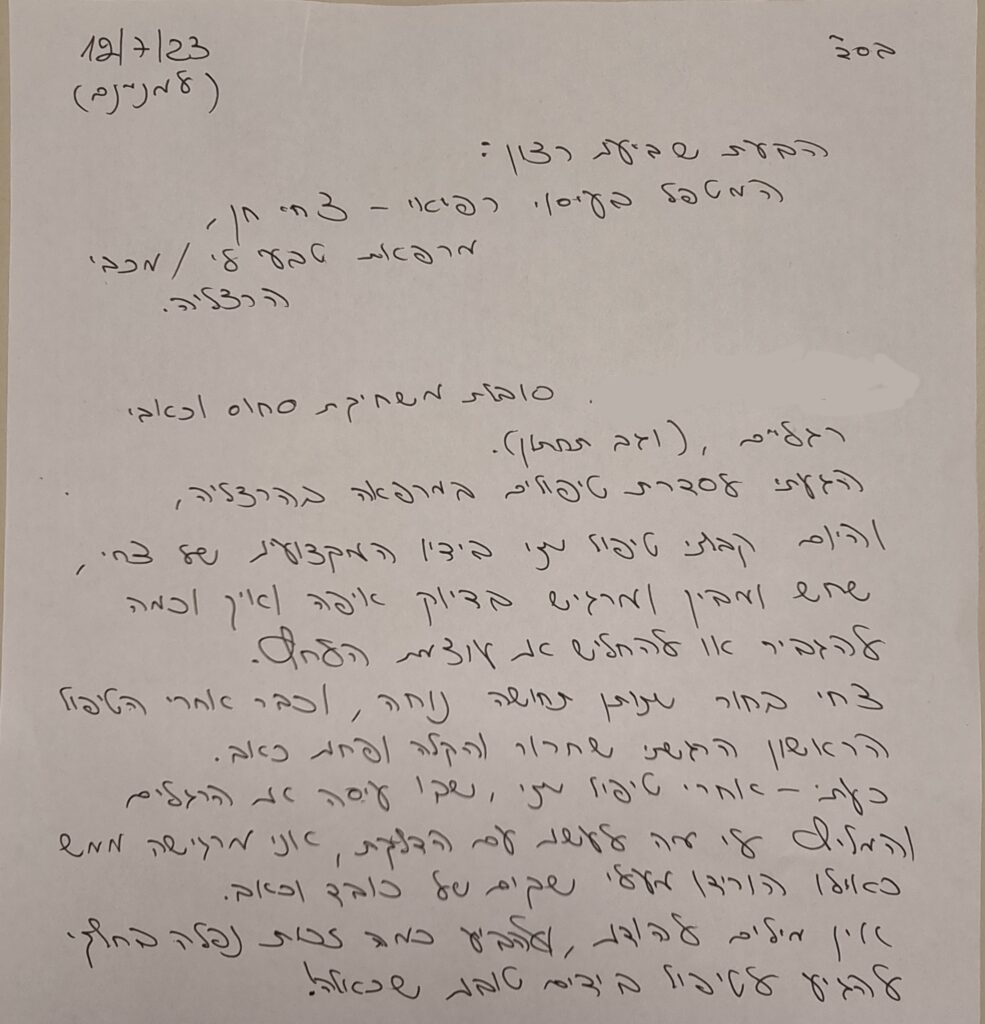 בסד
19/7/23
(למניינם)
הבעת שביעת רצון:
המטפל בעיסוי רפואי - צחי חן,
מרפאת טבע לי / מכבי
הרצליה.
סובלת משחיקת סחוס וכאבי
רגליים, (וגב תחתון).
הגעתי לסדרת טיפולים במרפאה בהרצליה,
והיום קבלתי טיפול שני בידיו המקצועיות של צחי,
שחש ומבין ומרגיש בדיוק איפה ואיך וכמה
להגביר או להחליש את עוצמת הלחץ.
צחי בחור שנותן תחושה נוחה, וכבר אחרי הטיפול
הראשון הרגשתי שחרור והקלה ופחות כאב.
כעת - אחרי טיפול שני, שבו עיסה את הרגליים
והמליץ לי מה לעשות עם הדלקת, אני מרגישה ממש
כאילו הורידו מעלי שקים של כובד וכאב.
אין מילים להודות, ולהביע כמה זכות נפלה בחלקי
להגיע לטיפול בידיים טובות שכאלה!